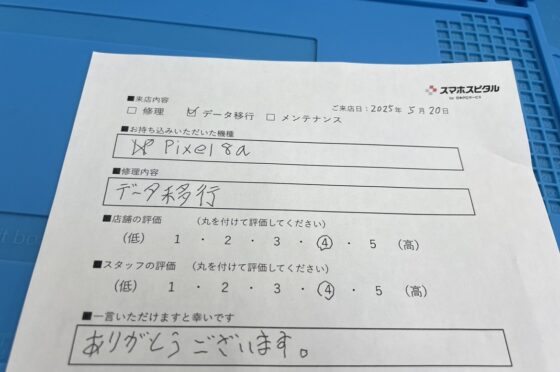 スマホスピタル
■来店内容
ご来店日：2025年 5月 20日
□ 修理 ☑ データ移行 □ メンテナンス
■お持ち込みいただいた機種
Pixel 8a
■修理内容
データ移行
■店舗の評価 （丸を付けて評価してください）
（低） 1 ・ 2 ・ 3 ・ ④ ・ 5 （高）
■スタッフの評価 （丸を付けて評価してください）
（低） 1 ・ 2 ・ 3 ・ ④ ・ 5 （高）
■一言いただけますと幸いです
ありがとうございます。